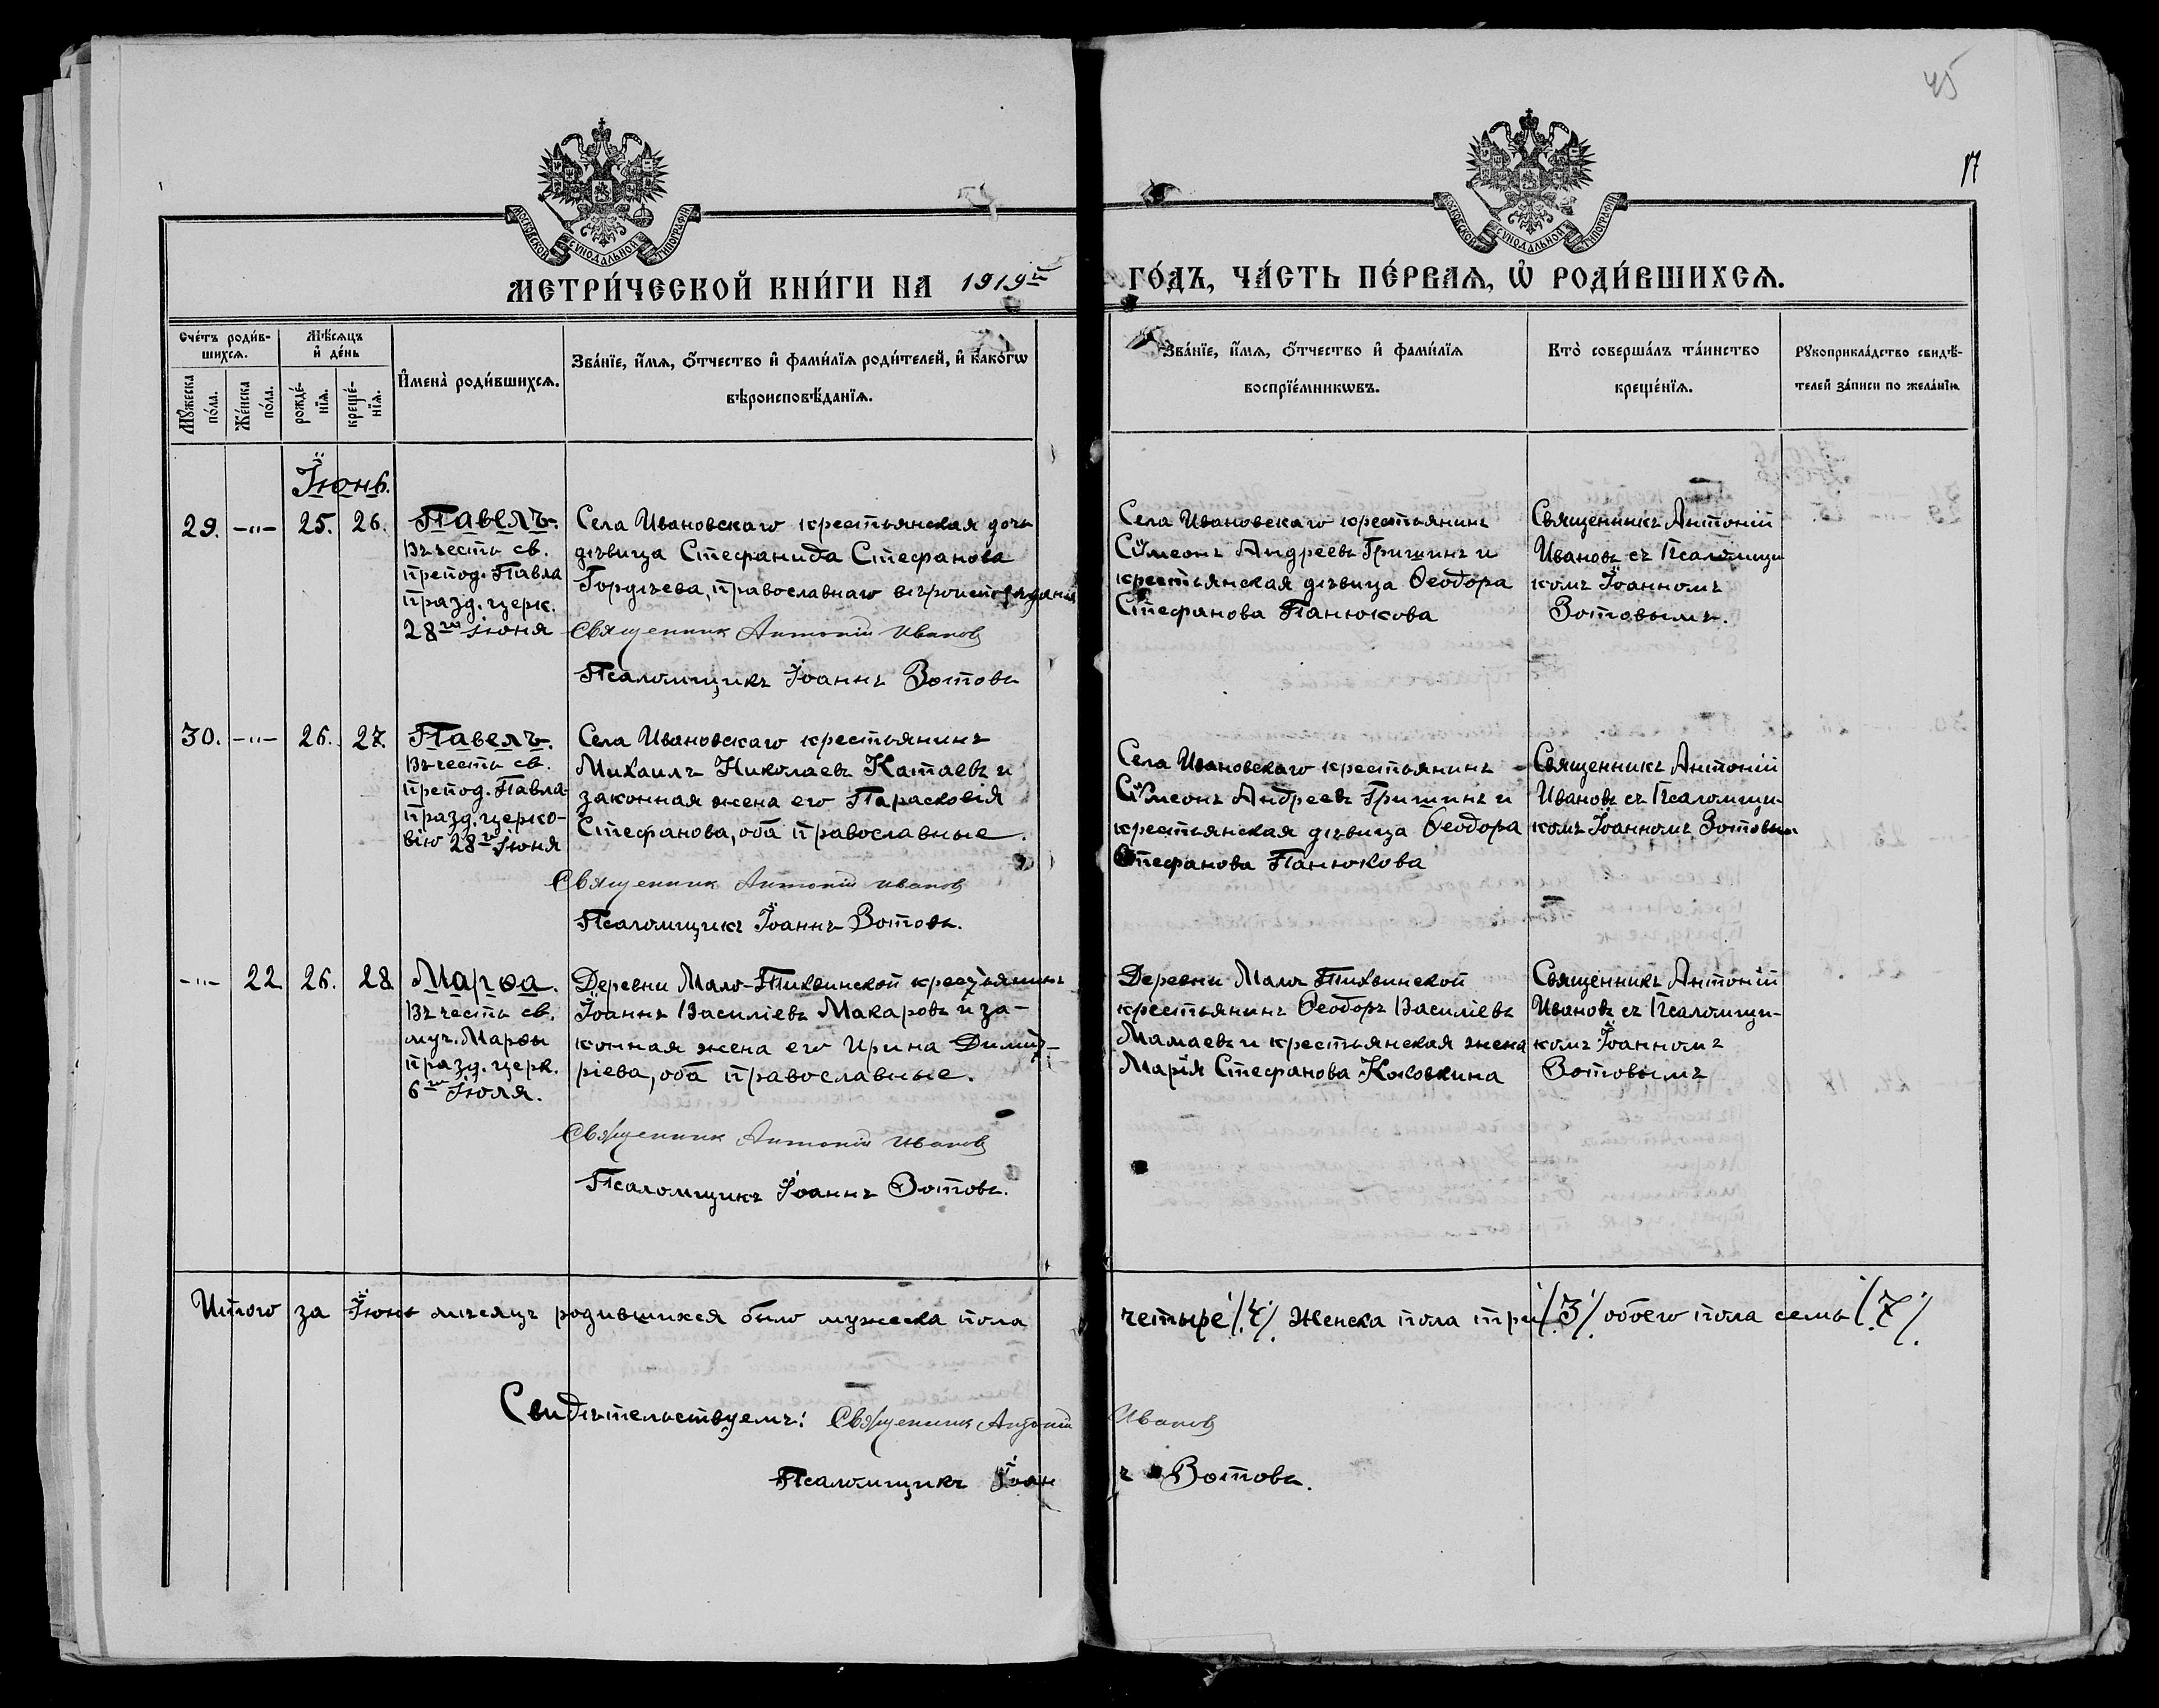 45
17
МОСКОВСКОЙ СѴНОДАЛЬНОЙ ТИПОГРАФІИ
МОСКОВСКОЙ СѴНОДАЛЬНОЙ ТИПОГРАФІИ
МЕТРИ́ЧЕСКОЙ КНИ́ГИ НА 1919й ГО́ДЪ, ЧА́СТЬ ПЕ́РВАѦ, Ѡ҆ РОДИ́ВШИХСѦ.
Сче́тъ роди́в-
шихсѧ.
Мѣ́сѧцъ
и҆ де́нь
Мꙋ́жеска
по́ла.
Же́нска
по́ла.
рожде́-
нїѧ.
креще́-
нїѧ.
И҆мена̀ роди́вшихсѧ.
Зва́нїе, и҆́мѧ, ѻ҆́тчество и҆ фами́лїѧ роди́телей, и҆ како́гѡ
вѣроисповѣ́данїѧ.
Зва́нїе, и҆́мѧ, ѻ҆́тчество и҆ фами́лїѧ
воспрїе́мникѡвъ.
Кто̀ соверша́лъ та́инство
креще́нїѧ.
Рꙋкоприкла́дство свидѣ́-
телей за́писи по жела́нїю.
Іюнь.
29. -"- 25. 26. Павелъ.
Въ честь св.
препод. Павла
празд. церк.
28го іюня
Села Ивановскаго крестьянская дочь
дѣвица Стефанида Стефанова
Гордѣева, православнаго вѣроисповѣданія
Священник Антоній Иванов
Псаломщикъ Іоаннъ Зотовъ
Села Ивановскаго крестьянинъ
Сѵмеонъ Андреевъ Гришинъ и
крестьянская дѣвица Ѳеодора
Стефанова Панюкова
Священникъ Антоній
Ивановъ съ Псаломщи
комъ Іоанномъ
Зотовымъ.
30. -"- 26. 27. Павелъ.
Въ честь св.
препод. Павла
празд. церко-
вію 28го Іюня
Села Ивановскаго крестьянинъ
Михаилъ Николаевъ Катаевъ и
законная жена его Парасковія
Стефанова, оба православные.
Священник Антоній Иванов
Псаломщикъ Іоаннъ Зотовъ.
Села Ивановскаго крестьянинъ
Сѵмеонъ Андреевъ Гришинъ и
крестьянская дѣвица Ѳеодора
Стефанова Панюкова
Священникъ Антоній
Ивановъ съ Псаломщи-
комъ Іоанномъ Зотовым
-"- 22 26. 28 Марѳа.
Въ честь св.
муч. Марѳы
празд. церк.
6го Іюля.
Деревни Мало-Тихвинской крестьянинъ
Іоаннъ Василіевъ Макаровъ и за-
конная жена его Ирина Димит-
ріева, оба православные.
Священник Антоній Иванов
Псаломщикъ Іоаннъ Зотовъ.
Деревни Мало Тихвинской
крестьянинъ Ѳеодоръ Василіевъ
Мамаевъ и крестьянская жена
Марія Стефанова
Священникъ Антоній
Ивановъ съ Псаломщи-
комъ Іоанномъ
Зотовымъ
Итого за Іюнь мѣсяцъ родившихся было мужеска пола четыре /4/. Женска пола три /3/ обоего пола семь /7/.
Свидѣтельствуемъ: Священник Антоній Иванов
Псаломщикъ Іоаннъ Зотовъ.